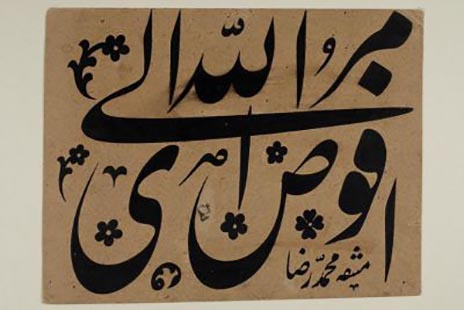 افوض امری الی الله
مشقه محمد رضا